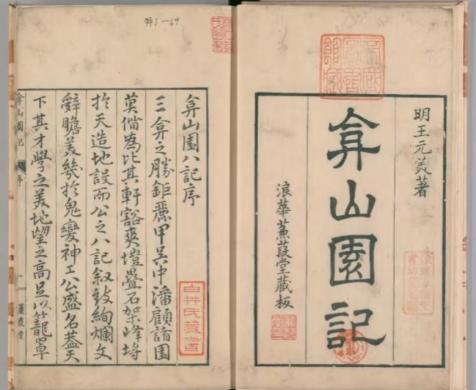 明王元美著
弇山園記
浪華蒹葭堂藏板
弇山園八記序
三弇之勝鉅麗甲吳中潘顧諸園
莫儔為比其軒豁爽塏疊石架峰埒
於天造地設而公之八記叙致絢爛文
辭贍美幾於鬼變神工公盛名蓋天
下其才學之美地望之高足以籠罩
白井氏藏書
弇山園記 序 一 蒹葭堂
1-69